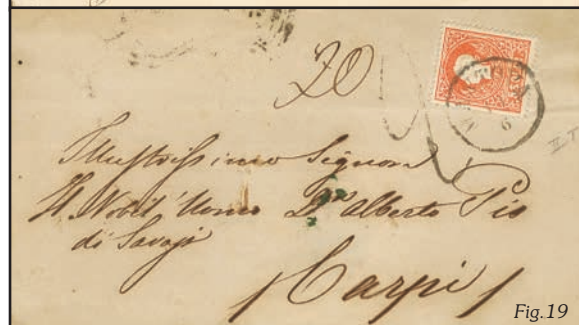 20
Illustrissimo Signore
Il Nobil Uomo Dr. Alberto Pio
di Savoja
Carpi
Fig.19